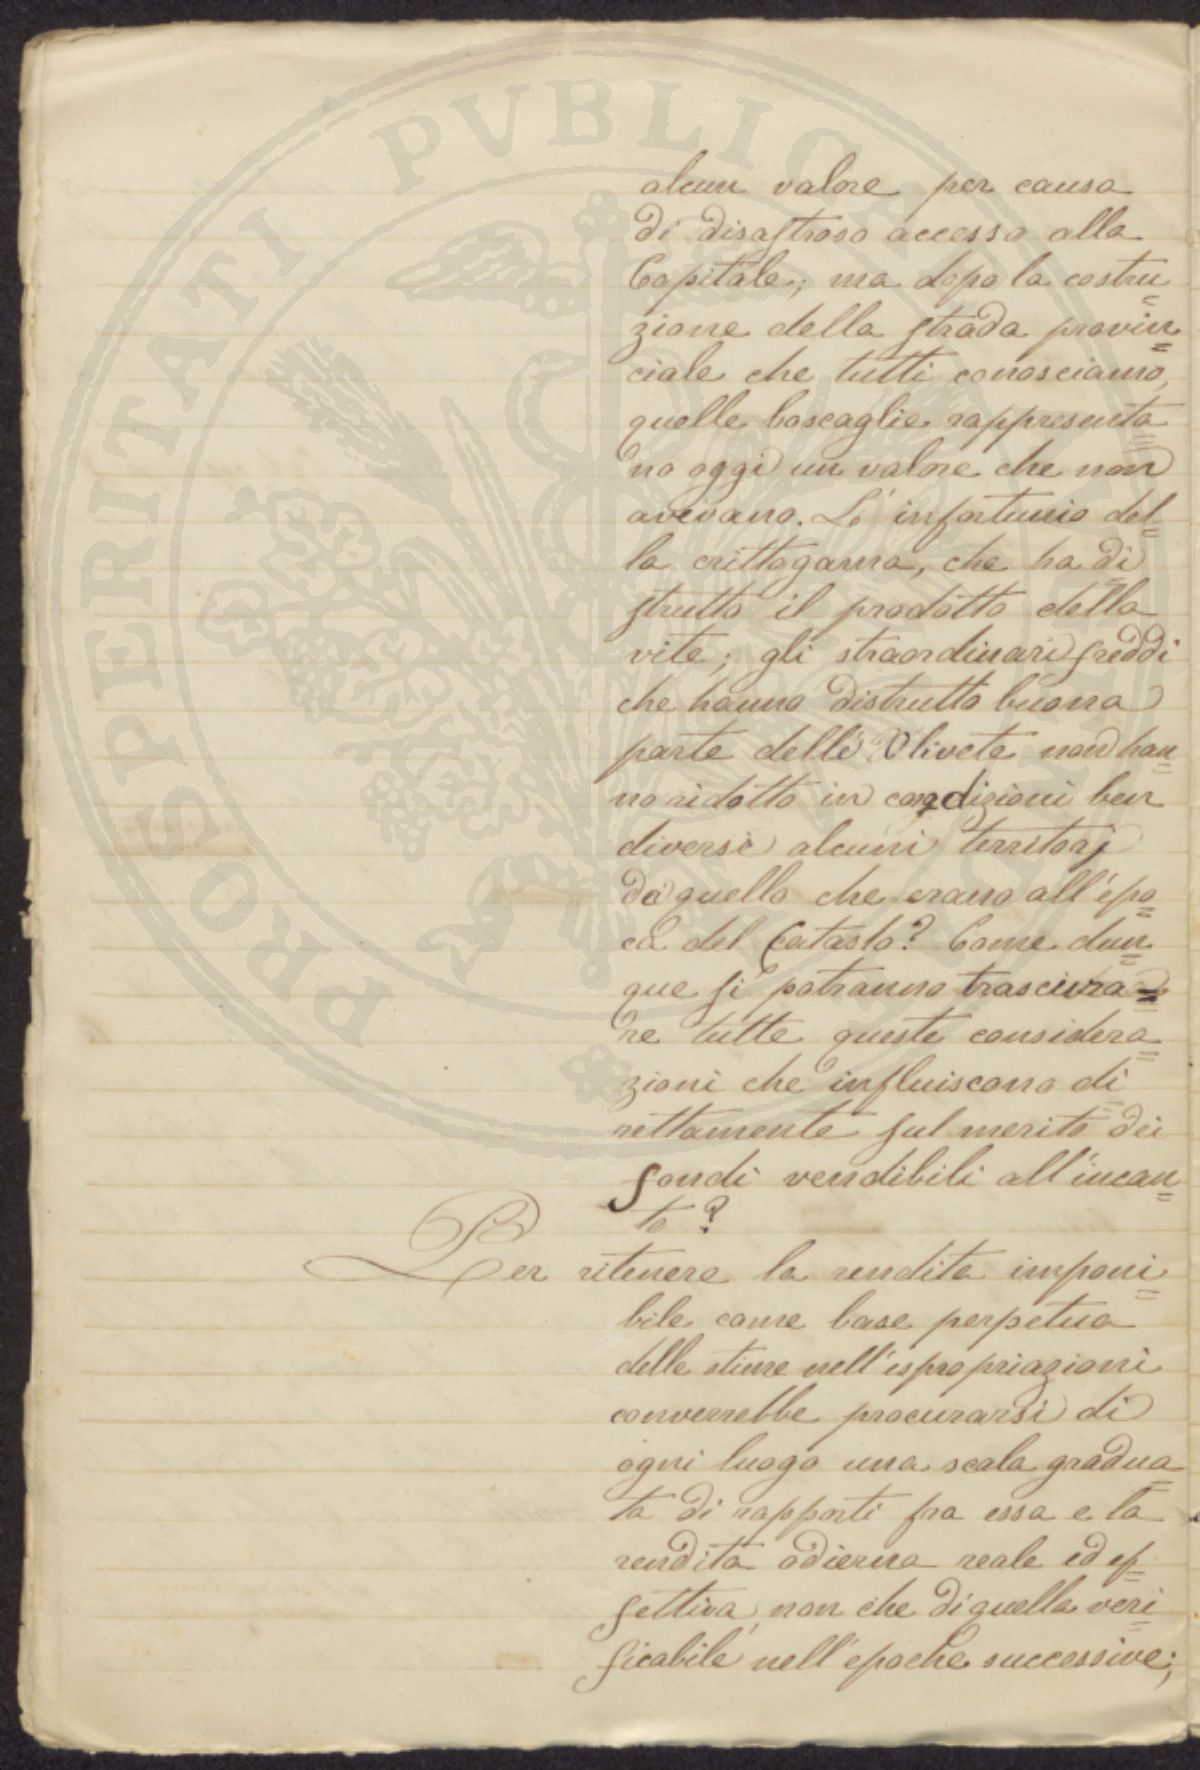 PROSPERITATI PVBLICAE
alcun valore per causa
di disastroso accesso alla
Capitale; ma dopo la costru=
zione della strada provin=
ciale che tutti conosciamo,
quelle boscaglie rappresenta=
no oggi un valore che non
avevano. L'infortunio del=
la crittogama, che ha di=
strutto il prodotto della
vite; gli straordinari freddi
che hanno distrutto buona
parte delle Olivete non han=
no ridotto in condizioni ben
diverse alcuni territorj
da quello che erano all'epo=
ca del Catasto? Come dun=
que si potranno trascura=
re tutte queste considera=
zioni che influiscono di=
rettamente sul merito dei
fondi vendibili all'incan=
to?
Per ritenere la rendita imponi=
bile come base perpetua
delle stime nell'espropriazioni
converrebbe procurarsi di
ogni luogo una scala gradua=
ta di rapporti fra essa e la
rendita odierna reale ed ef=
fettiva, non che di quella veri=
ficabile nell'epoche successive;